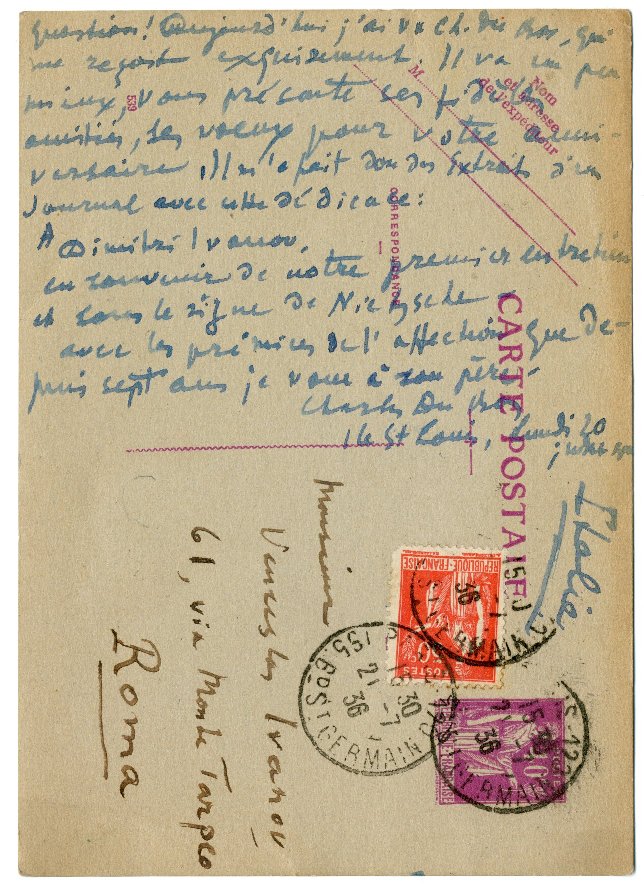 question! Aujourd'hui j'ai vu Ch. Du Bos, qui
me reçoit exquisement. Il va un peu
mieux, vous présente ses fidèles
amitiés, ses voeux pour votre anni-
versaire. Il m'a fait don des Extraits d'un
Journal avec cette dédicace:
A Dimitri Ivanov,
en souvenir de notre premier entretien
et sous le signe de Nietzsche
avec les prémices de l'affection que de-
puis sept ans je voue à son père.
Charles Du Bos
Ile St Louis, Lundi 20
Nom
et adresse
de l'expéditeur
M
539
CORRESPONDANCE
CARTE POSTALE
Italie
Monsieur
Venceslas Ivanov
61, via Monte Tarpeo
Roma
REPUBLIQUE FRANÇAISE
POSTES
50c
15 30
21 -7
36
155. BD ST GERMAIN
15 30
21 -7
36
ST GERMAIN
15 30
36
ST GERMAIN